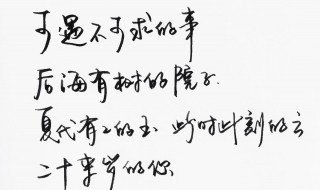 可遇不可求的事
后海有树的院子.
夏代有工的玉 此时此刻的云
二十来岁的你